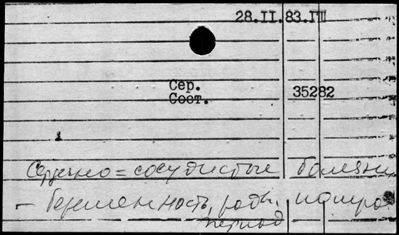 28.II.83.ГШ
Сер.
Соот.
35282
Сердечно=сосудистые болезни
- беременность, родв.
период